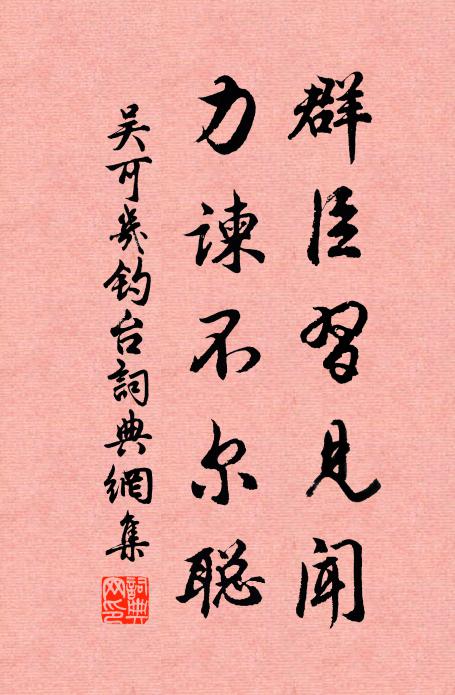 群臣習見聞
力諫不尔聪
吴可幾钓台詞典網集
詞典网印